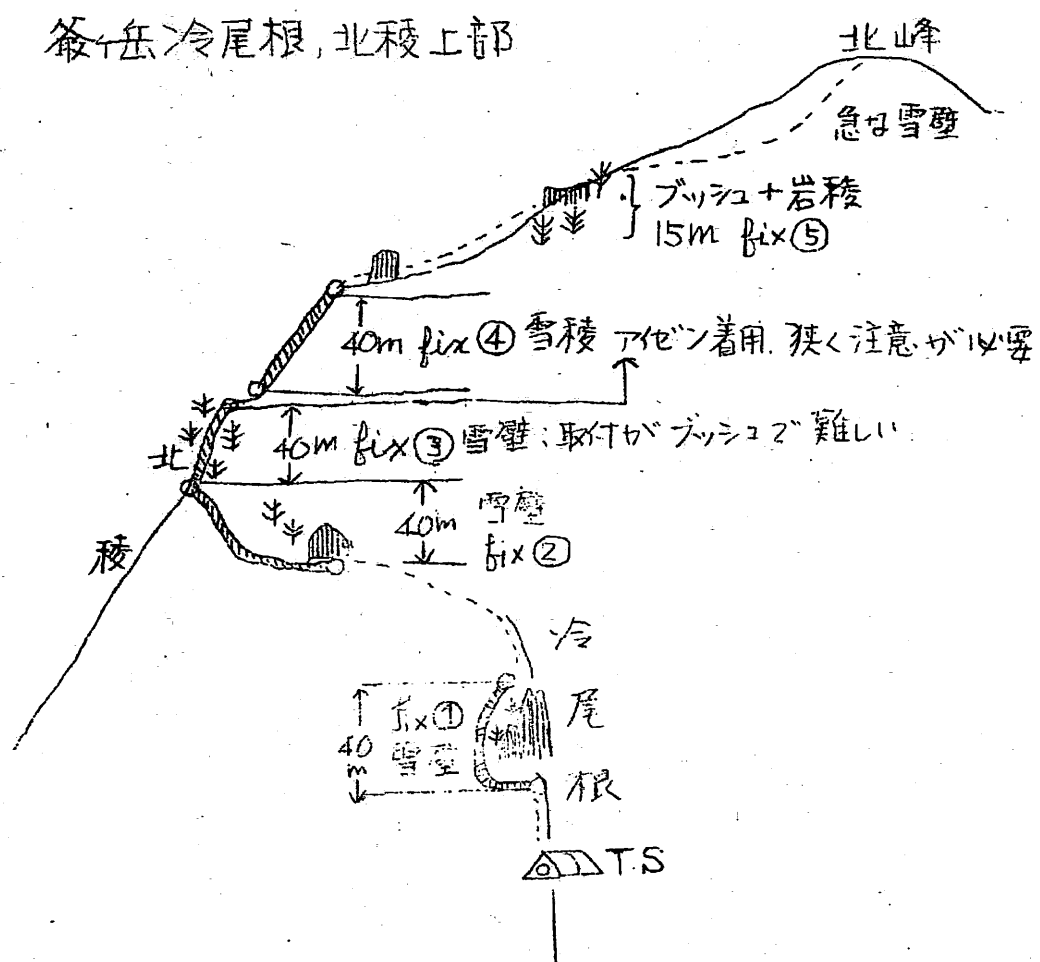 爺ヶ岳冷尾根,北稜上部
北峰
急な雪壁
ブッシュ+岩稜
15m fix⑤
40m fix④ 雪稜 アイゼン着用. 狭く注意が必要
40m fix③ 雪壁:取付がブッシュで難しい
北
稜
40m 雪壁
fix②
冷
尾
根
fix①
雪壁
40
m
T.S